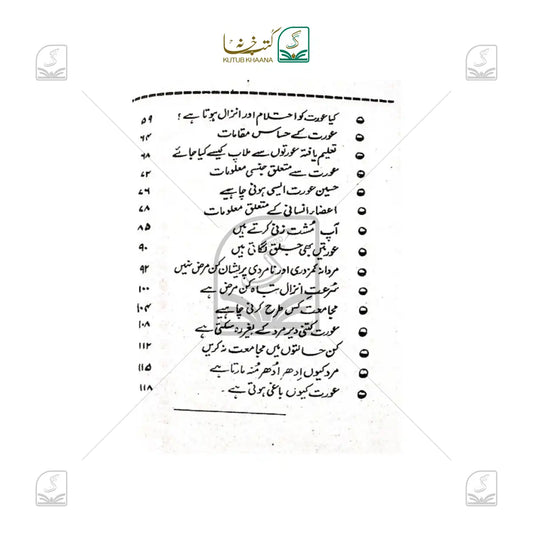 کتب خانہ
KUTUB KHAANA
کیا عورت کو احتلام اور انزال ہوتا ہے؟ ۵۹
عورت کے حساس مقامات ۶۴
تعلیم یافتہ عورتوں سے ملاپ کیسے کیا جائے ۶۸
عورت سے متعلق جنسی معلومات ۷۲
حسین عورت ایسی ہونی چاہیے ۷۶
اعضاء انسانی کے متعلق معلومات ۷۸
آپ مُشت زنی کرتے ہیں ۸۵
عورتیں بھی جلق لگاتی ہیں ۹۰
مردانہ کمزوری اور نامردی پریشان کن مرض نہیں ۹۲
سُرعتِ انزال تباہ کن مرض ہے ۱۰۰
مجامعت کس طرح کرنی چاہے ۱۰۴
عورت کتنی دیر مرد کے بغیر رہ سکتی ہے ۱۰۸
کن حالتوں میں مجامعت نہ کریں ۱۱۲
مرد کیوں اِدھر اُدھر مُنہ مارتا ہے ۱۱۵
عورت کیوں باغی ہوتی ہے۔ ۱۱۸